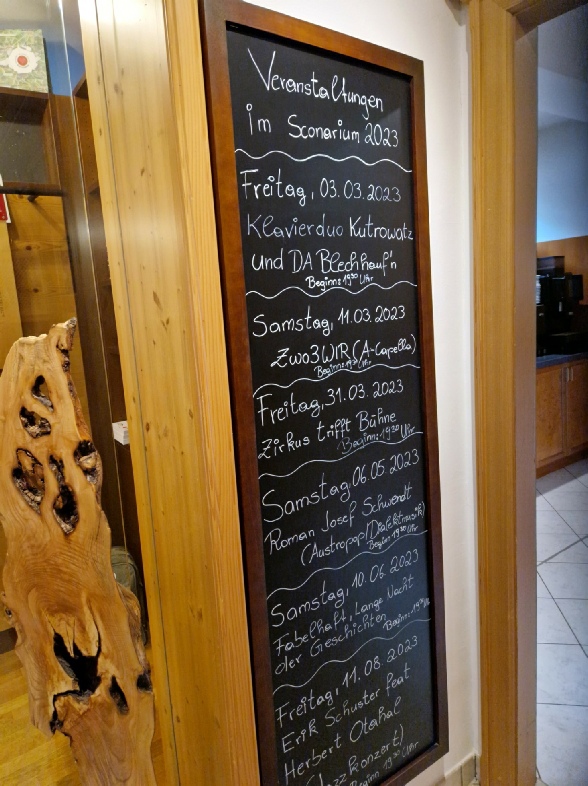 Veranstaltungen
im Sconarium 2023
Freitag, 03.03.2023
Klavierduo Kutrowatz
und DA Blechhauf'n
Beginn: 19³⁰ Uhr
Samstag, 11.03.2023
Zwo3WIR (A-Capella)
Beginn: 19³⁰ Uhr
Freitag, 31.03.2023
Zirkus trifft Bühne
Beginn: 19³⁰ Uhr
Samstag, 06.05.2023
Roman Josef Schwendt
(Austropop/Dialektmusik)
Beginn 19³⁰ Uhr
Samstag, 10.06.2023
Fabelhaft, Lange Nacht
der Geschichten
Beginn: 19³⁰ Uhr
Freitag, 11.08.2023
Erik Schuster feat
Herbert Otahal
(Jazzkonzert)
Beginn 19³⁰ Uhr